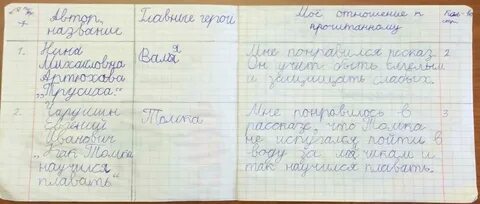 № п/п
Автор, название
Главные герои
Моё отношение к прочитанному
Кол-во стр.
1.
Нина
Михайловна
Артюхова
„Трусиха"
Валя
Мне понравился рассказ.
Он учит быть смелым
и защищать слабых.
2
2.
Чарушин
Евгений
Иванович
„Как Томка
научился
плавать"
Томка
Мне понравилось в
рассказе, что Томка
не испугался пойти в
воду за
и
так научился плавать.
3